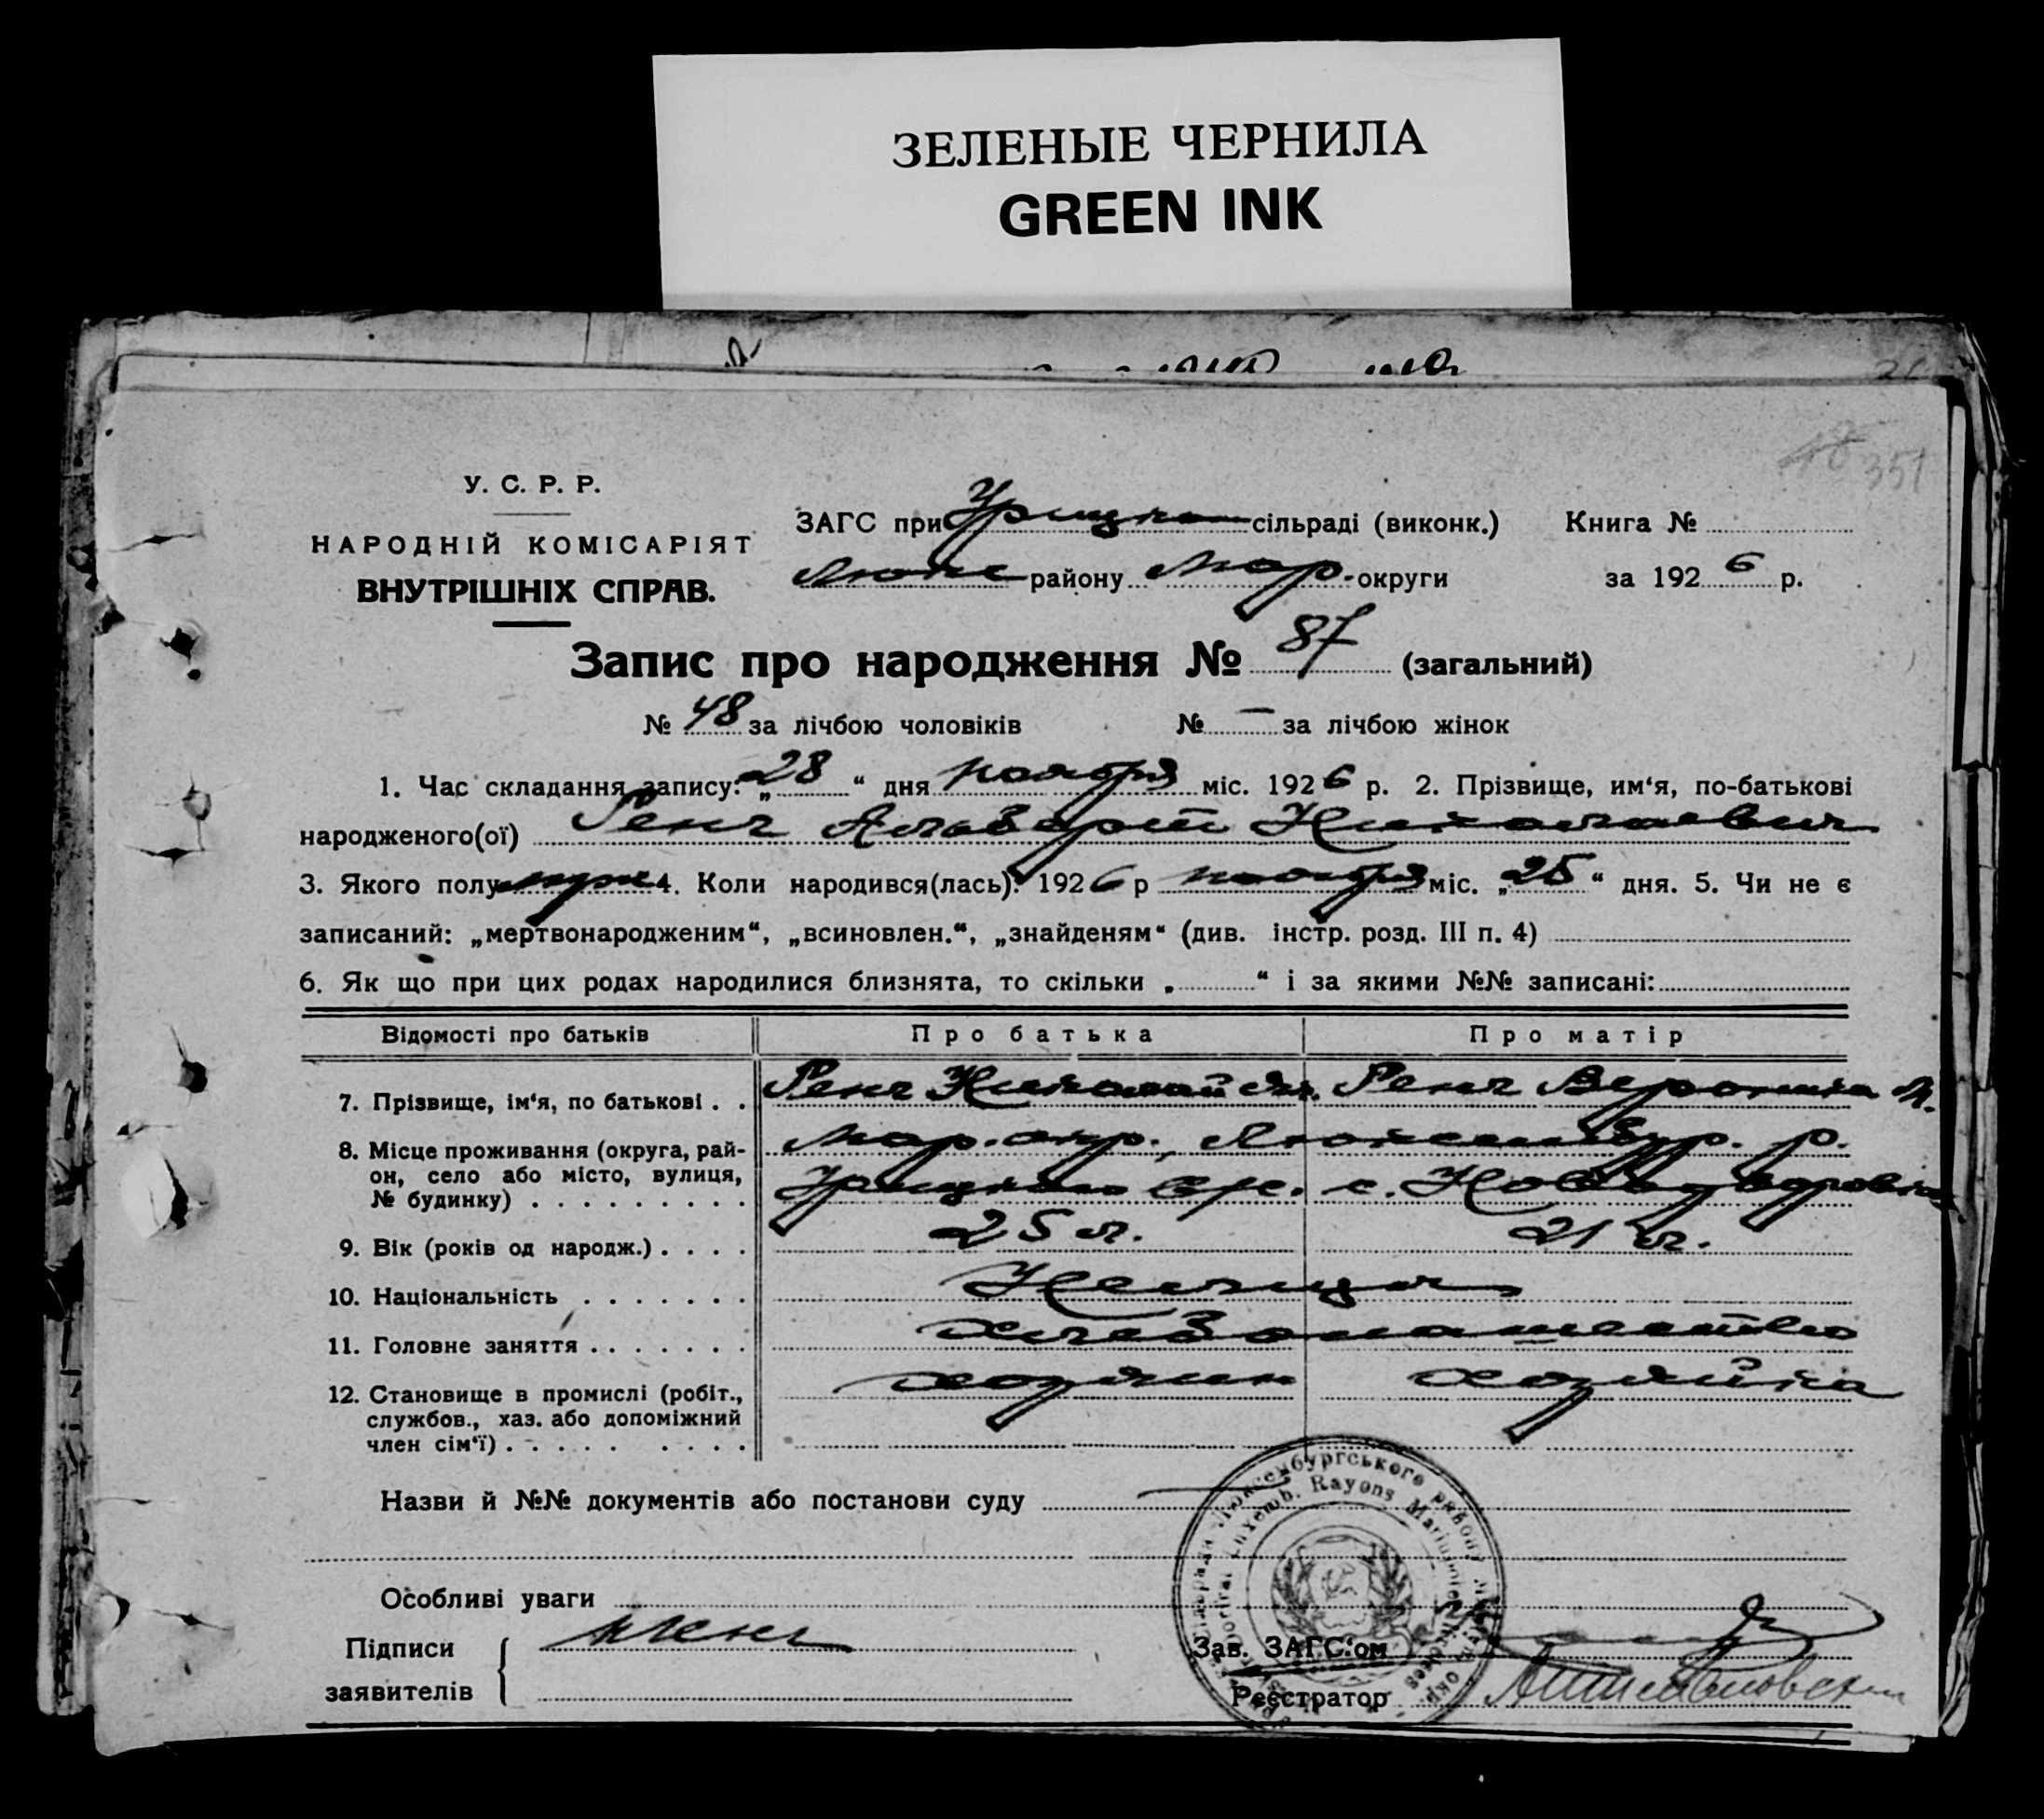 ЗЕЛЕНЫЕ ЧЕРНИЛА
GREEN INK
351
У. С. Р. Р.
НАРОДНІЙ КОМІСАРІЯТ
ВНУТРІШНІХ СПРАВ.
ЗАГС при Урицком сільраді (виконк.) Книга №
Люкс району Мар. округи за 1926 р.
Запис про народження № 87 (загальний)
№ 48 за лічбою чоловіків № — за лічбою жінок
1. Час складання запису: „28“ дня ноября міс. 1926 р. 2. Прізвище, им‘я, по-батькові
народженого(ої) Ренч Альберт Николаевич
3. Якого полу муж 4. Коли народився(лась): 1926 р ноября міс. „25“ дня. 5. Чи не є
записаний: „мертвонародженим“, „всиновлен.“, „знайденям“ (див. інстр. розд. III п. 4)
6. Як що при цих родах народилися близнята, то скільки „ “ і за якими №№ записані:
Відомості про батьків Про батька Про матір
7. Прізвище, ім‘я, по батькові . . Ренч Николай Ренч Вероника
8. Місце проживання (округа, рай- Мар. окр., Люксембур. р.
он, село або місто, вулиця,
№ будинку) . . . . . . . . . Урицкого с/с. с.
9. Вік (років од народж.) . . . . 25 л. 21 л.
10. Національність . . . . . . . Немцы
11. Головне заняття . . . . . . . хлебопашество
12. Становище в промислі (робіт., хозяин хозяйка
службов., хаз. або допоміжний
член сім‘ї) . . . . . . . . .
Назви й №№ документів або постанови суду
Особливі уваги
Люксембургського району
Luxemb. Rayons
Підписи
заявителів
Зав. ЗАГС‘ом
Реєстратор